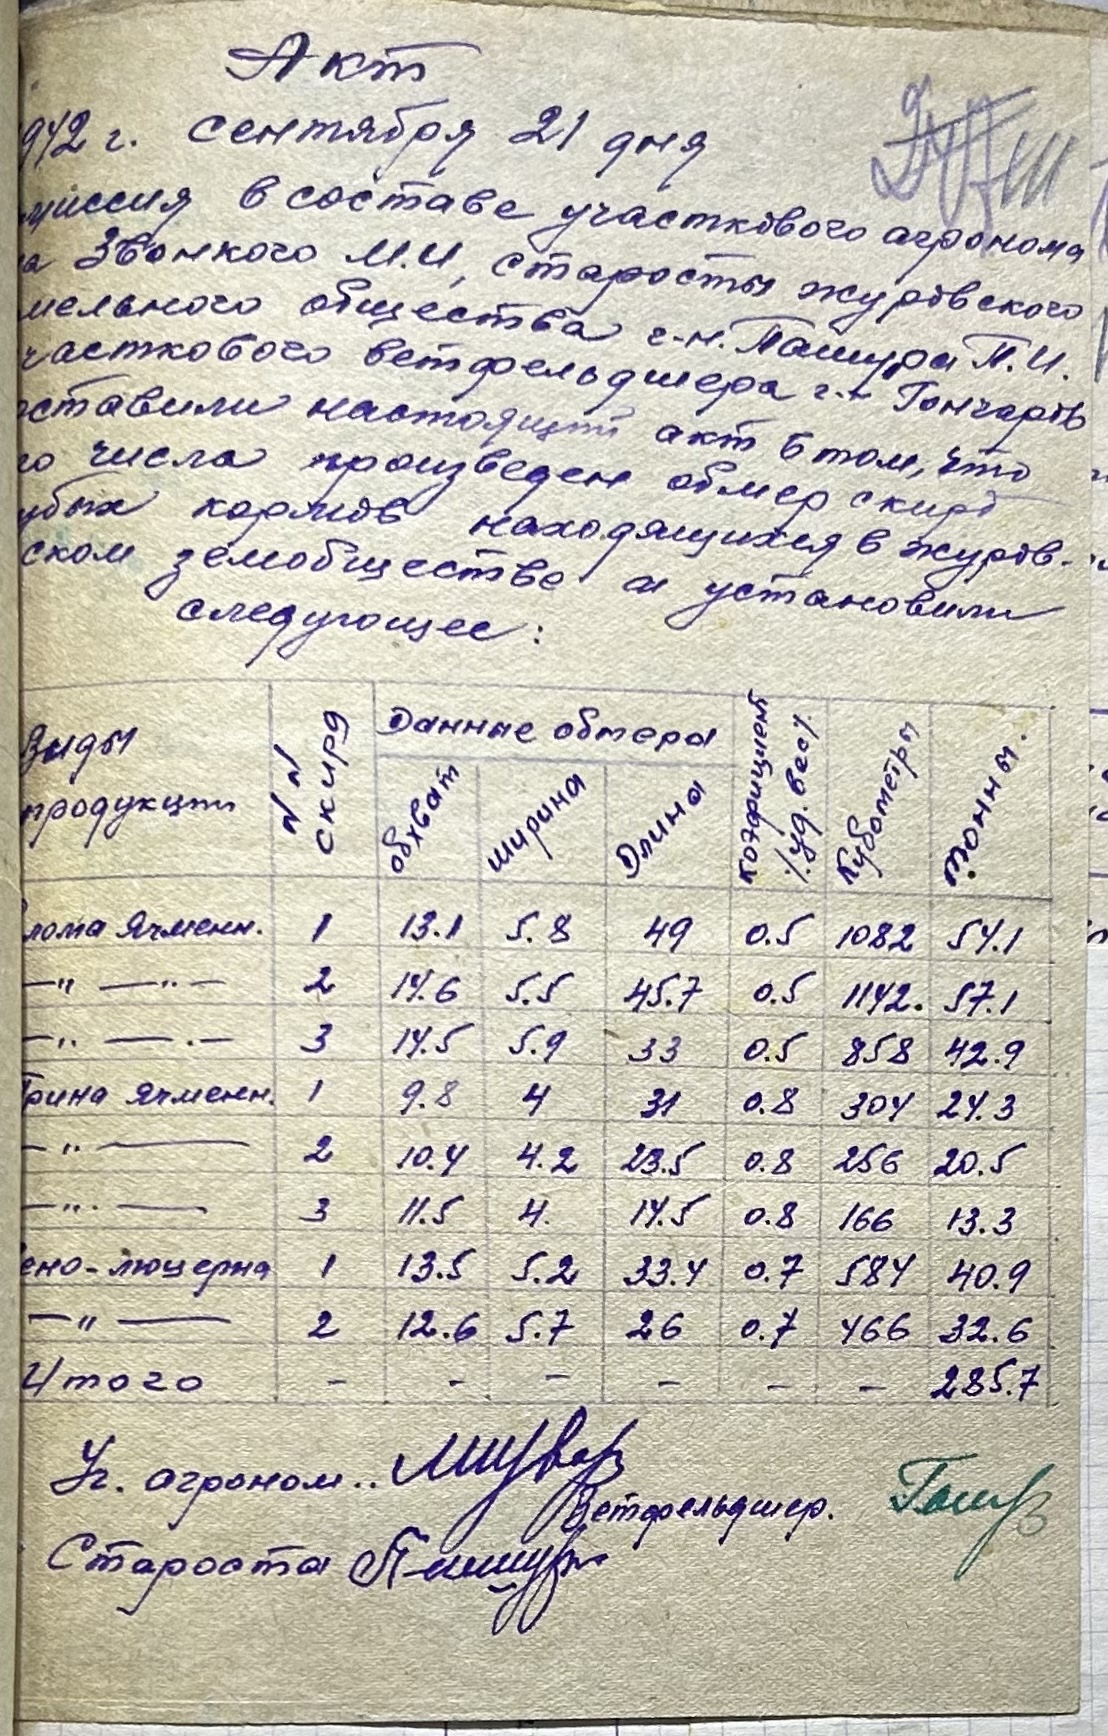 Акт
1942 г. сентября 21 дня
миссия в составе участкового агронома
на Звонкого М.И, старосты журовского
мельного общества г-н. Пашура П.И.
часткового ветфельдшера г-н Гончаров
оставили настоящий акт в том, что
го числа произведен обмер скирд
убых кормов находящихся в журов-
ском земобществе и установили
следующее:
Виды продукции | N N скирд | Данные обмера | коэфициент /уд. вес/ | Кубометры | тонны.
обхват | ширина | Длина
лома Ячменн. | 1 | 13.1 | 5.8 | 49 | 0.5 | 1082 | 54.1
—"— —"— | 2 | 14.6 | 5.5 | 45.7 | 0.5 | 1142. | 57.1
—"— —"— | 3 | 14.5 | 5.9 | 33 | 0.5 | 858 | 42.9
Грина Ячменн. | 1 | 9.8 | 4 | 31 | 0.8 | 304 | 24.3
—"— | 2 | 10.4 | 4.2 | 23.5 | 0.8 | 256 | 20.5
—"— | 3 | 11.5 | 4. | 14.5 | 0.8 | 166 | 13.3
ено-люцерна | 1 | 13.5 | 5.2 | 33.4 | 0.7 | 584 | 40.9
—"— | 2 | 12.6 | 5.7 | 26 | 0.7 | 466 | 32.6
Итого | - | - | - | - | - | - | 285.7
Уч. агроном..
Ветфельдшер.
Староста Пашура